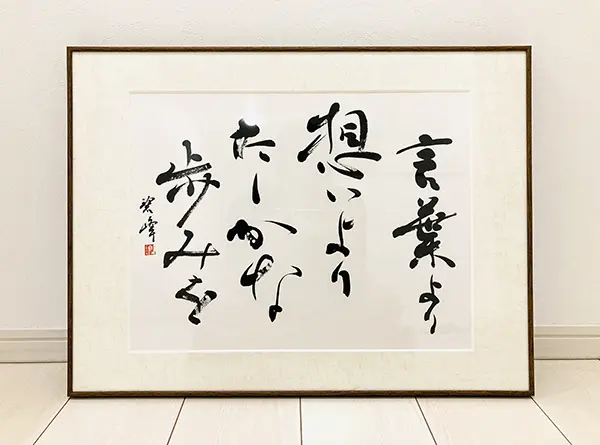 言葉より
想いより
たしかな
歩みを
碧峰